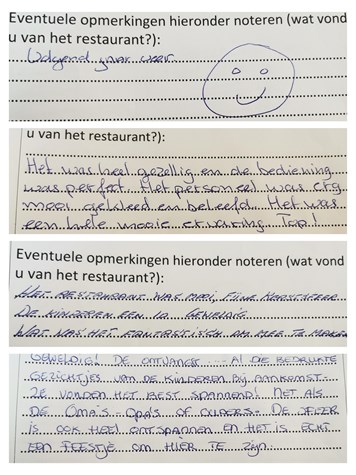 Eventuele opmerkingen hieronder noteren (wat vond
u van het restaurant?):
Volgend jaar weer.
u van het restaurant?):
Het was heel gezellig en de bediening
was perfect. Het personeel was erg
mooi gekleed en beleefd. Het was
een hele mooie ervaring. Top!
Eventuele opmerkingen hieronder noteren (wat vond
u van het restaurant?):
HET RESTAURANT WAS MOOI, FIJNE KERSTSFEER
DE KINDEREN EEN 10. GEWELDIG.
WAT WAS HET FANTASTISCH OM MEE TE MAKEN
GEWELDIG! DE ONTVANGST... AL DIE BEDRUKTE
GEZICHTJES VAN DE KINDEREN BIJ AANKOMST.
ZE VONDEN HET BEST SPANNEND! NET ALS
DE OMA'S - OPA'S OF OUDERS - DE SFEER
IS OOK HEEL ONTSPANNEN EN HET IS ECHT
EEN FEESTJE OM HIER TE ZIJN.